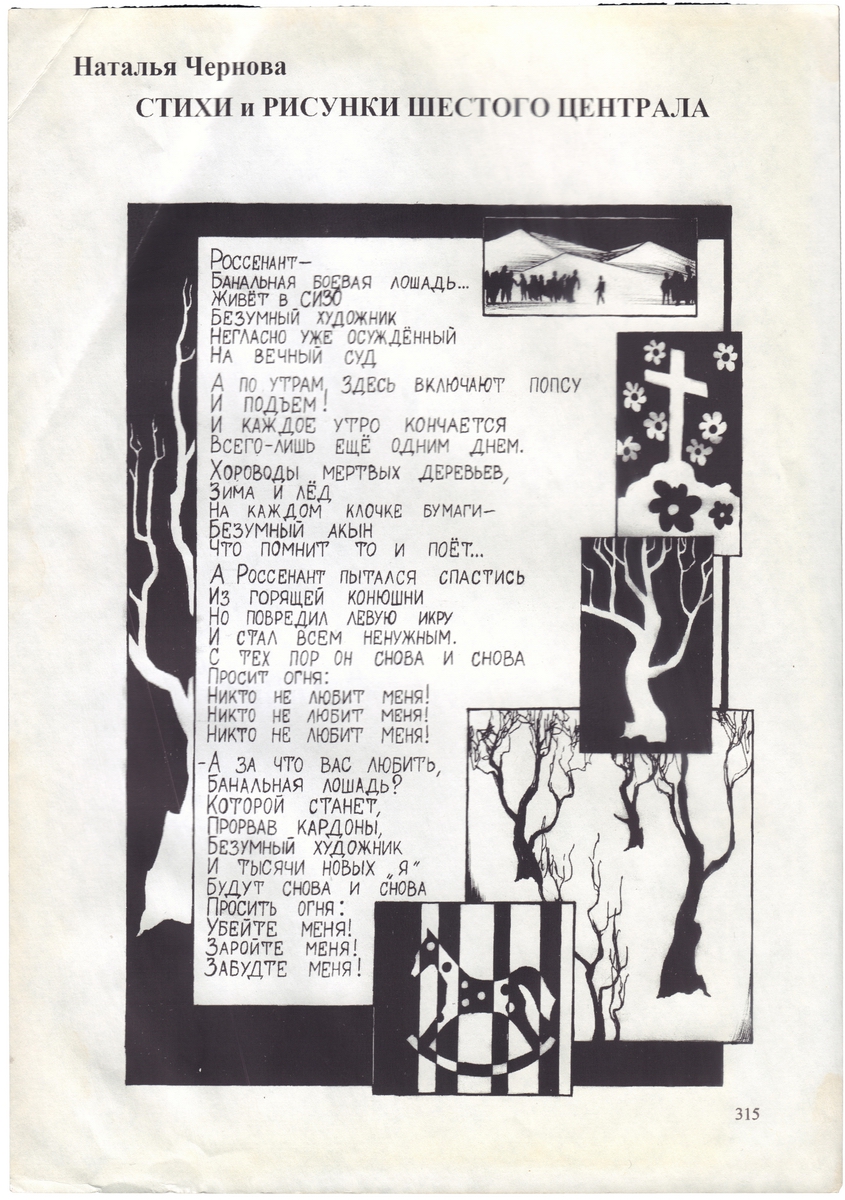 Наталья Чернова
СТИХИ и РИСУНКИ ШЕСТОГО ЦЕНТРАЛА
Россенант—
Банальная боевая лошадь...
Живёт в СИЗО
Безумный художник
Негласно уже осуждённый
На вечный суд
А по утрам здесь включают попсу
И подъем!
И каждое утро кончается
Всего-лишь ещё одним днем.
Хороводы мертвых деревьев,
Зима и лёд
На каждом клочке бумаги—
Безумный акын
Что помнит то и поёт...
А Россенант пытался спастись
Из горящей конюшни
Но повредил левую икру
И стал всем ненужным.
С тех пор он снова и снова
Просит огня:
Никто не любит меня!
Никто не любит меня!
Никто не любит меня!
-А за что вас любить,
Банальная лошадь?
Которой станет,
Прорвав кардоны,
Безумный художник
И тысячи новых „я"
Будут снова и снова
Просить огня:
Убейте меня!
Заройте меня!
Забудте меня!
315